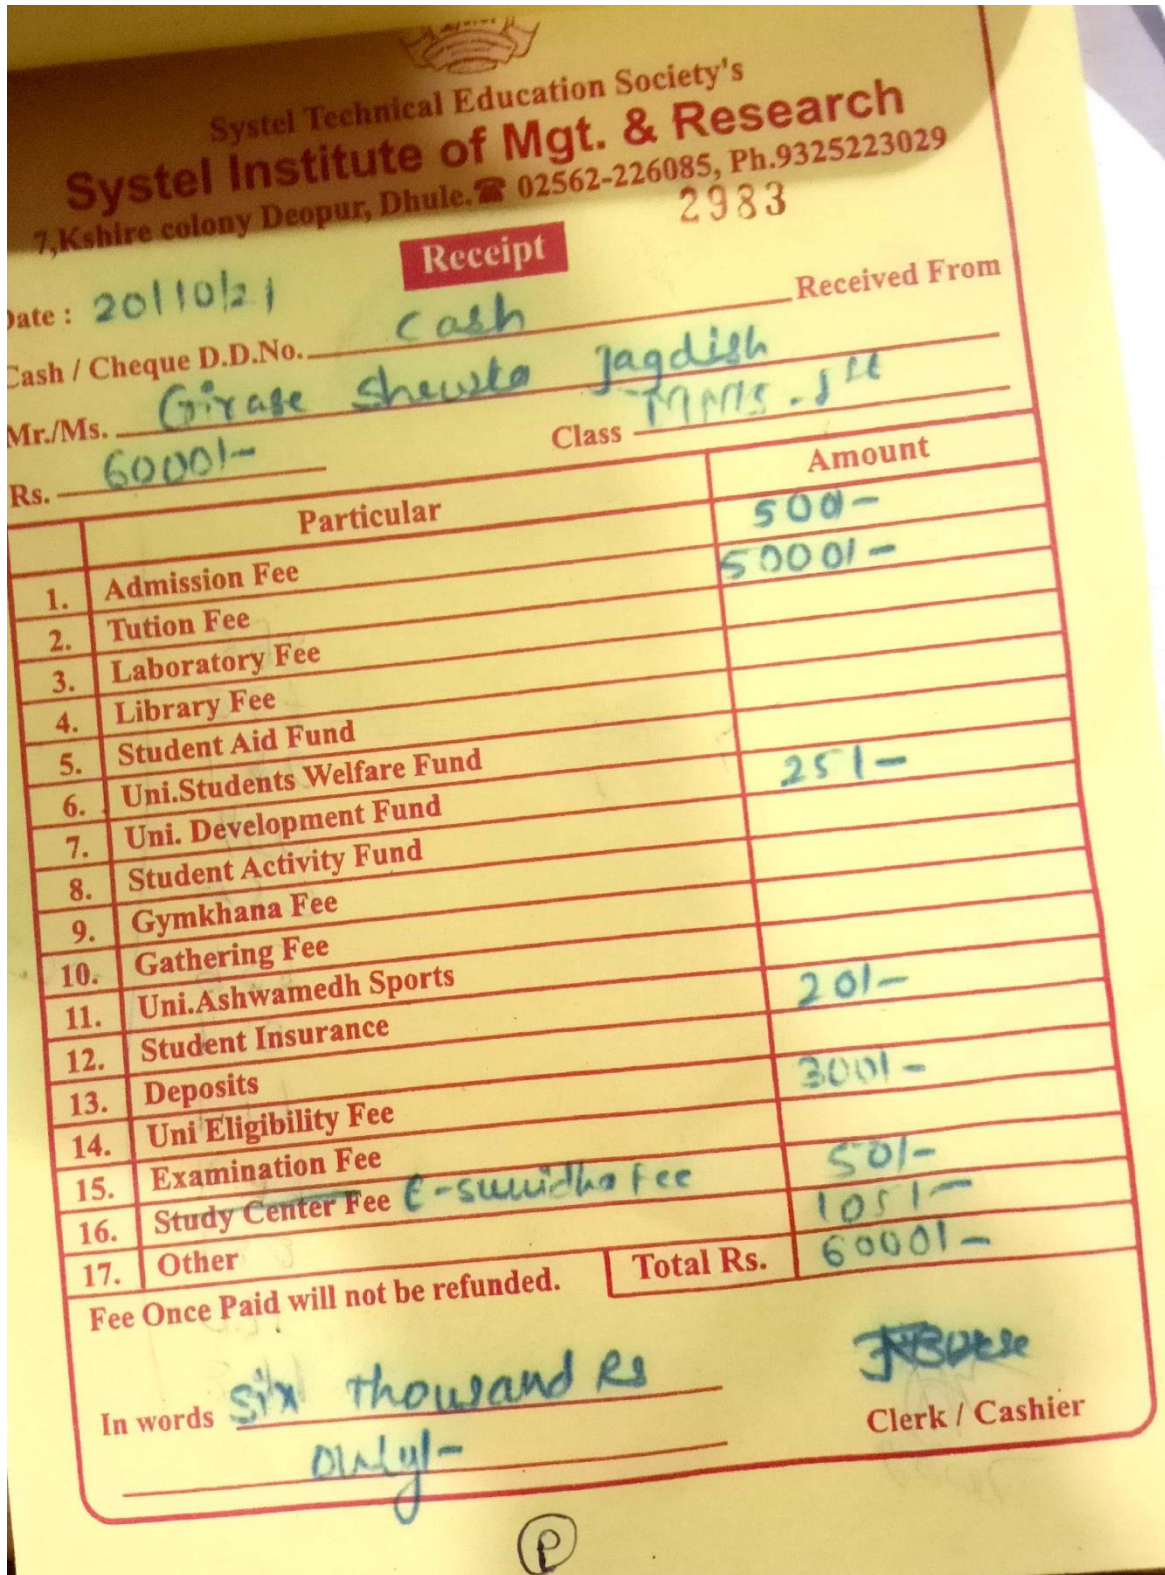 Systel Technical Education Society's
Systel Institute of Mgt. & Research
7,Kshire colony Deopur, Dhule.☎ 02562-226085, Ph.9325223029
2983
Receipt
ate : 20/10/21
Cash / Cheque D.D.No. Cash Received From
Mr./Ms. Girase Shewta Jagdish
Rs. 6000/- Class MMS - Ist
Particular Amount
1. Admission Fee 500/-
2. Tution Fee 5000/-
3. Laboratory Fee
4. Library Fee
5. Student Aid Fund
6. Uni.Students Welfare Fund
7. Uni. Development Fund 25/-
8. Student Activity Fund
9. Gymkhana Fee
10. Gathering Fee
11. Uni.Ashwamedh Sports
12. Student Insurance 20/-
13. Deposits
14. Uni Eligibility Fee 300/-
15. Examination Fee
16. Study Center Fee E-suvidha Fee 50/-
17. Other 105/-
Total Rs. 6000/-
Fee Once Paid will not be refunded.
In words Six Thousand Rs
only/-
Clerk / Cashier
P